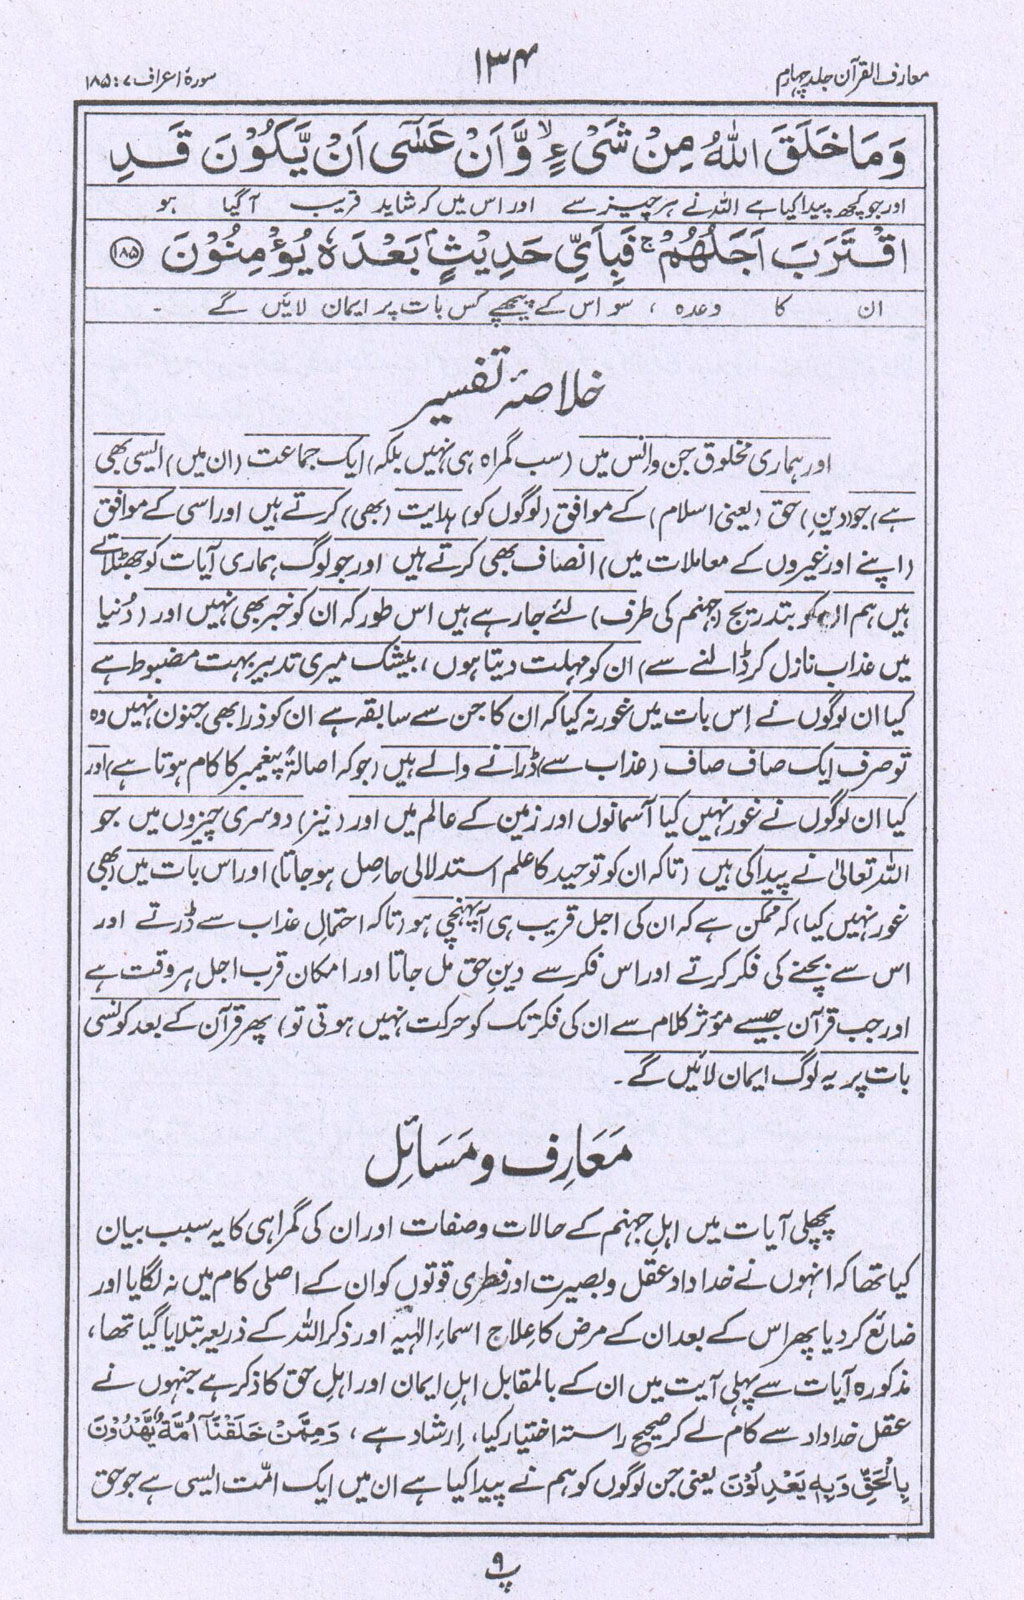 معارف القرآن جلد چہارم
۱۳۴
سورۂ اعراف ۷ : ۱۸۵
وَمَا خَلَقَ اللّٰهُ مِنْ شَیْءٍ ۙ وَّاَنْ عَسٰٓی اَنْ یَّكُوْنَ قَدِ
اور جو کچھ پیدا کیا ہے اللہ نے ہر چیز سے اور اس میں کہ شاید قریب آ گیا ہو
اقْتَرَبَ اَجَلُهُمْ ۚ فَبِاَیِّ حَدِیْثٍۭ بَعْدَهٗ یُؤْمِنُوْنَ ﴿۱۸۵﴾
ان کا وعدہ ، سو اس کے پیچھے کس بات پر ایمان لائیں گے ۔
خلاصۂ تفسیر
اور ہماری مخلوق جن و انس میں (سب گمراہ ہی نہیں بلکہ) ایک جماعت (ان میں) ایسی بھی
ہے) جو (دین) حق (یعنی اسلام) کے موافق (لوگوں کو) ہدایت (بھی) کرتے ہیں اور اسی کے موافق
(اپنے اور غیروں کے معاملات میں) انصاف بھی کرتے ہیں اور جو لوگ ہماری آیات کو جھٹلاتے
ہیں ہم ان کو بتدریج (جہنم کی طرف) لئے جا رہے ہیں اس طور کہ ان کو خبر بھی نہیں اور (دُنیا
میں عذاب نازل کر ڈالنے سے) ان کو مہلت دیتا ہوں ، بیشک میری تدبیر بہت مضبوط ہے
کیا ان لوگوں نے اِس بات میں غور نہ کیا کہ ان کا جن سے سابقہ ہے ان کو ذرا بھی جنون نہیں وہ
تو صرف ایک صاف صاف (عذاب سے) ڈرانے والے ہیں (جو کہ اصالۃً پیغمبر کا کام ہوتا ہے) اور
کیا ان لوگوں نے غور نہیں کیا آسمانوں اور زمین کے عالم میں اور (نیز) دوسری چیزوں میں جو
اللہ تعالیٰ نے پیدا کی ہیں (تاکہ ان کو توحید کا علم استدلالی حاصل ہو جاتا) اور اس بات میں (بھی
غور نہیں کیا) کہ ممکن ہے کہ ان کی اجل قریب ہی آ پہنچی ہو (تاکہ احتمالِ عذاب سے ڈرتے اور
اس سے بچنے کی فکر کرتے اور اس فکر سے دینِ حق مل جاتا اور امکان قرب اجل ہر وقت ہے
اور جب قرآن جیسے مؤثر کلام سے ان کی فکر تک کو حرکت نہیں ہوتی تو) پھر قرآن کے بعد کونسی
بات پر یہ لوگ ایمان لائیں گے ۔
مَعَارِف و مَسَائِل
پچھلی آیات میں اہلِ جہنم کے حالات و صفات اور ان کی گمراہی کا یہ سبب بیان
کیا تھا کہ انہوں نے خداداد عقل و بصیرت اور فطری قوتوں کو ان کے اصلی کام میں نہ لگایا اور
ضائع کر دیا پھر اس کے بعد ان کے مرض کا علاج اسماءِ الٰہیہ اور ذکر اللہ کے ذریعہ بتلایا گیا تھا ،
مذکورہ آیات سے پہلی آیت میں ان کے بالمقابل اہلِ ایمان اور اہلِ حق کا ذکر ہے جنہوں نے
عقل خداداد سے کام لے کر صحیح راستہ اختیار کیا ، اِرشاد ہے ، وَمِمَّنْ خَلَقْنَآ اُمَّةٌ یَّهْدُوْنَ
بِالْحَقِّ وَبِهٖ یَعْدِلُوْنَ یعنی جن لوگوں کو ہم نے پیدا کیا ہے ان میں ایک امّت ایسی ہے جو حق
پ ۹